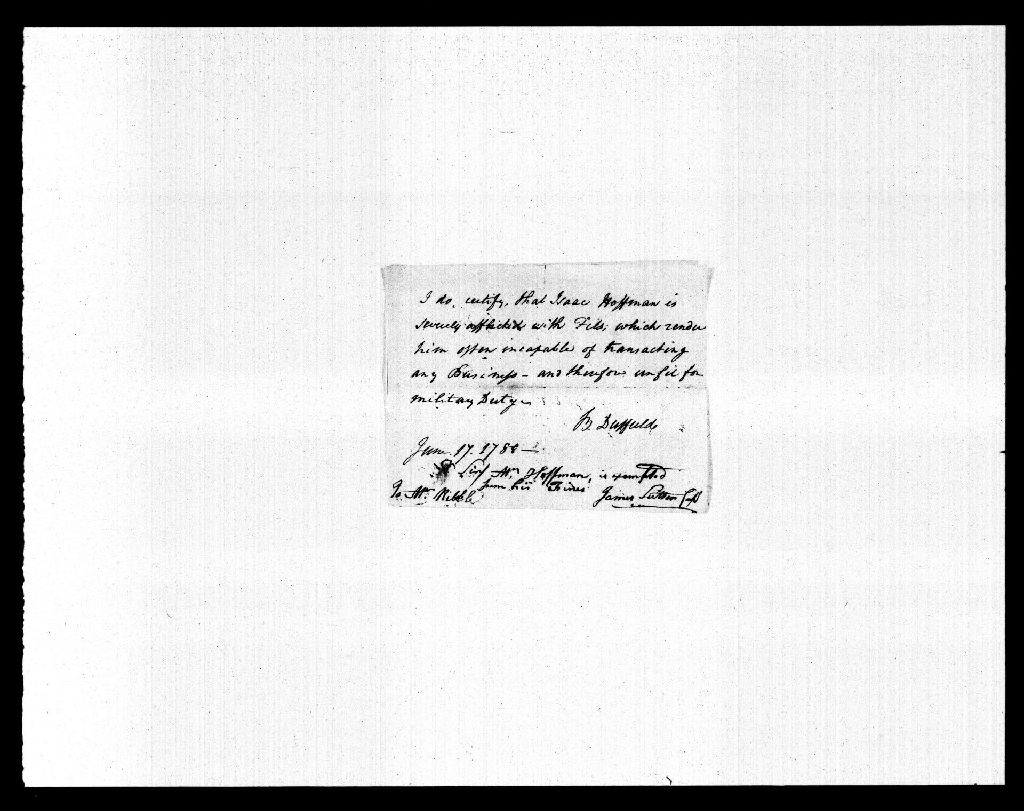 I do certify, that Isaac Hoffman is
severely afflicted with Fits, which render
him often incapable of transacting
any Business - and therefore unfit for
military Duty.
B. Duffield
June 17. 1788 -
Sir Mr. Hoffman, is exempted
from his Fines
To Mr. Kebble James Sutton Capt